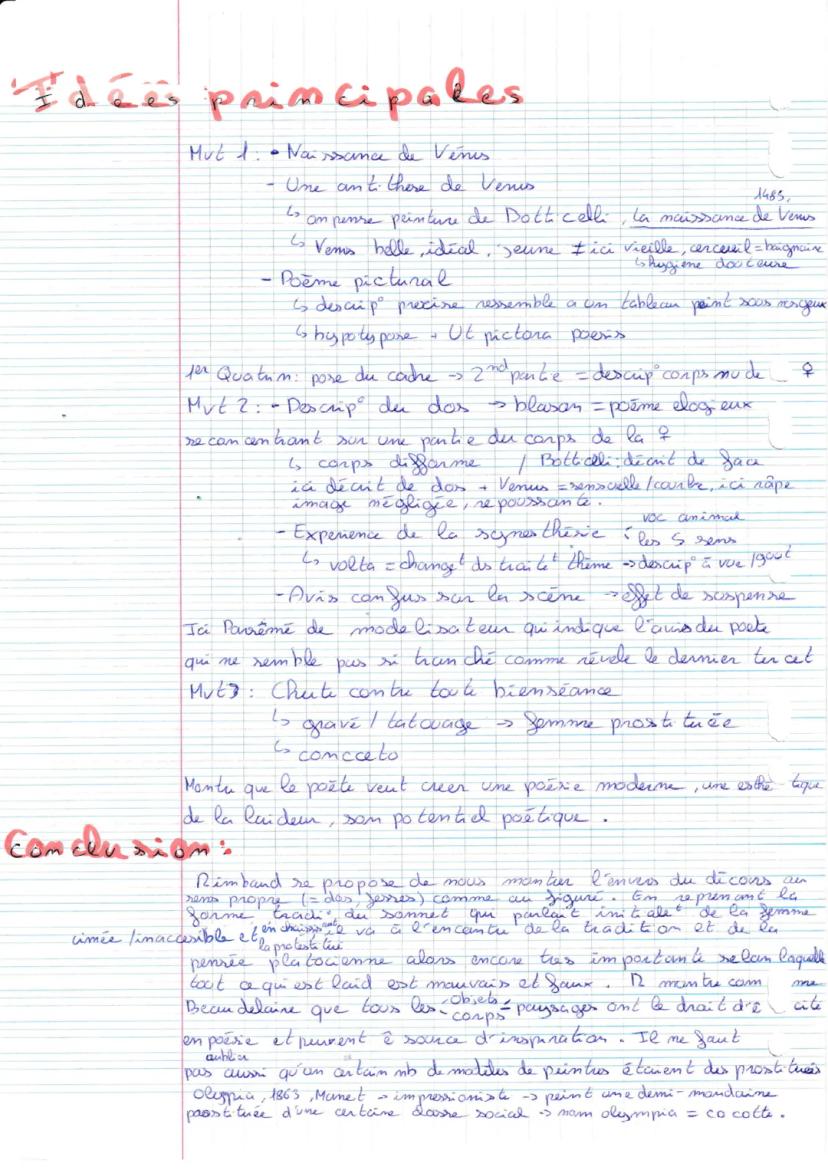 Idées principales
Mvt 1 : • Naissance de Vénus
- Une antithese de Venus
1485,
↳ on pense peinture de Botticelli, La naissance de Venus
↳ Venus belle, idéal, jeune ≠ ici vieille, cercueil = baignoire
↳ hygiene douteuse
- Poème pictural
↳ descrip° precise ressemble a un tableau peint sous nos yeux
↳ hypotypose + Ut pictora poesis
1er Quatrin : pose du cadre → 2nd partie = descrip° corps nu de ♀
Mvt 2 : - Descrip° du dos → blason = poème elogieux
se concentrant sur une partie du corps de la ♀
↳ corps difforme / Botticelli : décrit de face
ici décrit de dos + Venus = sensuelle / courbe, ici râpe
image négligée, repoussante.
voc animal
- Experience de la synesthésie : les 5 sens
↳ volta = changet ds traitet thème → descrip° à vue / gout
- Avis confus sur la scène → effet de suspense
Ici Parsémé de modelisateur qui indique l'avis du poete
qui ne semble pas si tranché comme révele le dernier tercet
Mvt 3 : Chute contre toute bienséance
↳ gravé / tatouage → femme prostituée
↳ concceto
Montre que le poète veut creer une poésie moderne, une esthétique
de la laideur, son potentiel poétique.
Conclusion :
Rimbaud se propose de nous montrer l'envers du décors au
sens propre (= dos, fesses) comme au figuré. En reprenant la
forme tradi° du sonnet qui parlait initialet de la femme
aimée / inaccesible et en choisissant la prostituée, il va à l'encontre de la tradition et de la
pensée platocienne alors encore tres importante selon laquelle
tout ce qui est laid est mauvais et faux. Il montre comme
Beaudelaire que tous les objets - corps - paysages ont le droit d'ê cité
en poésie et peuvent ê source d'inspiration. Il ne faut
oublier
pas aussi qu'un certain nb de modèles de peintres étaient des prostituées
Olympia, 1863, Manet → impressioniste → peint une demi-mondaine
prostituée d'une certaine classe social → nom olympia = cocotte.